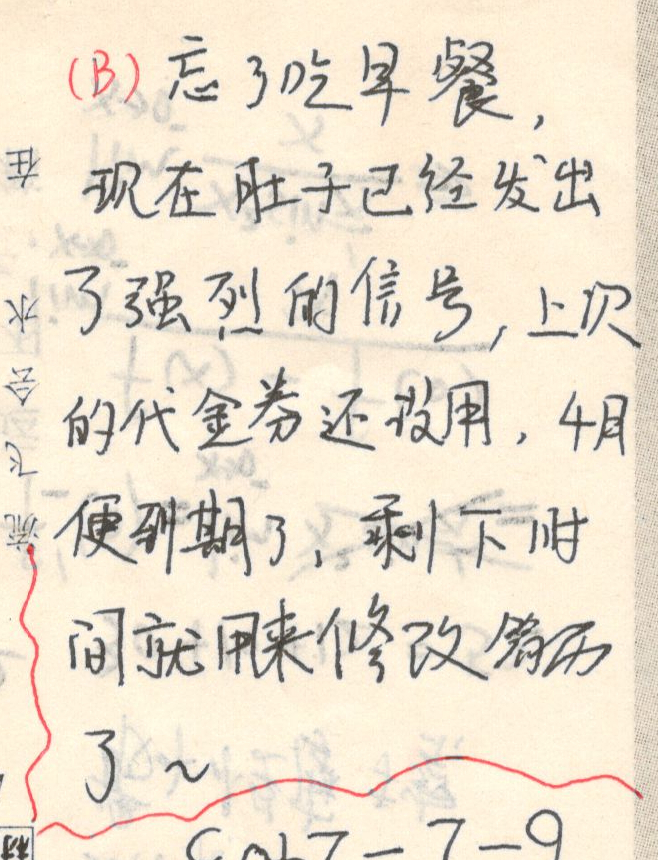 (B) 忘了吃早餐,
现在肚子已经发出
了强烈的信号,上次
的代金券还没用,4月
便到期了,剩下时
间就用来修改简历
了~
在
水
会
飞
流